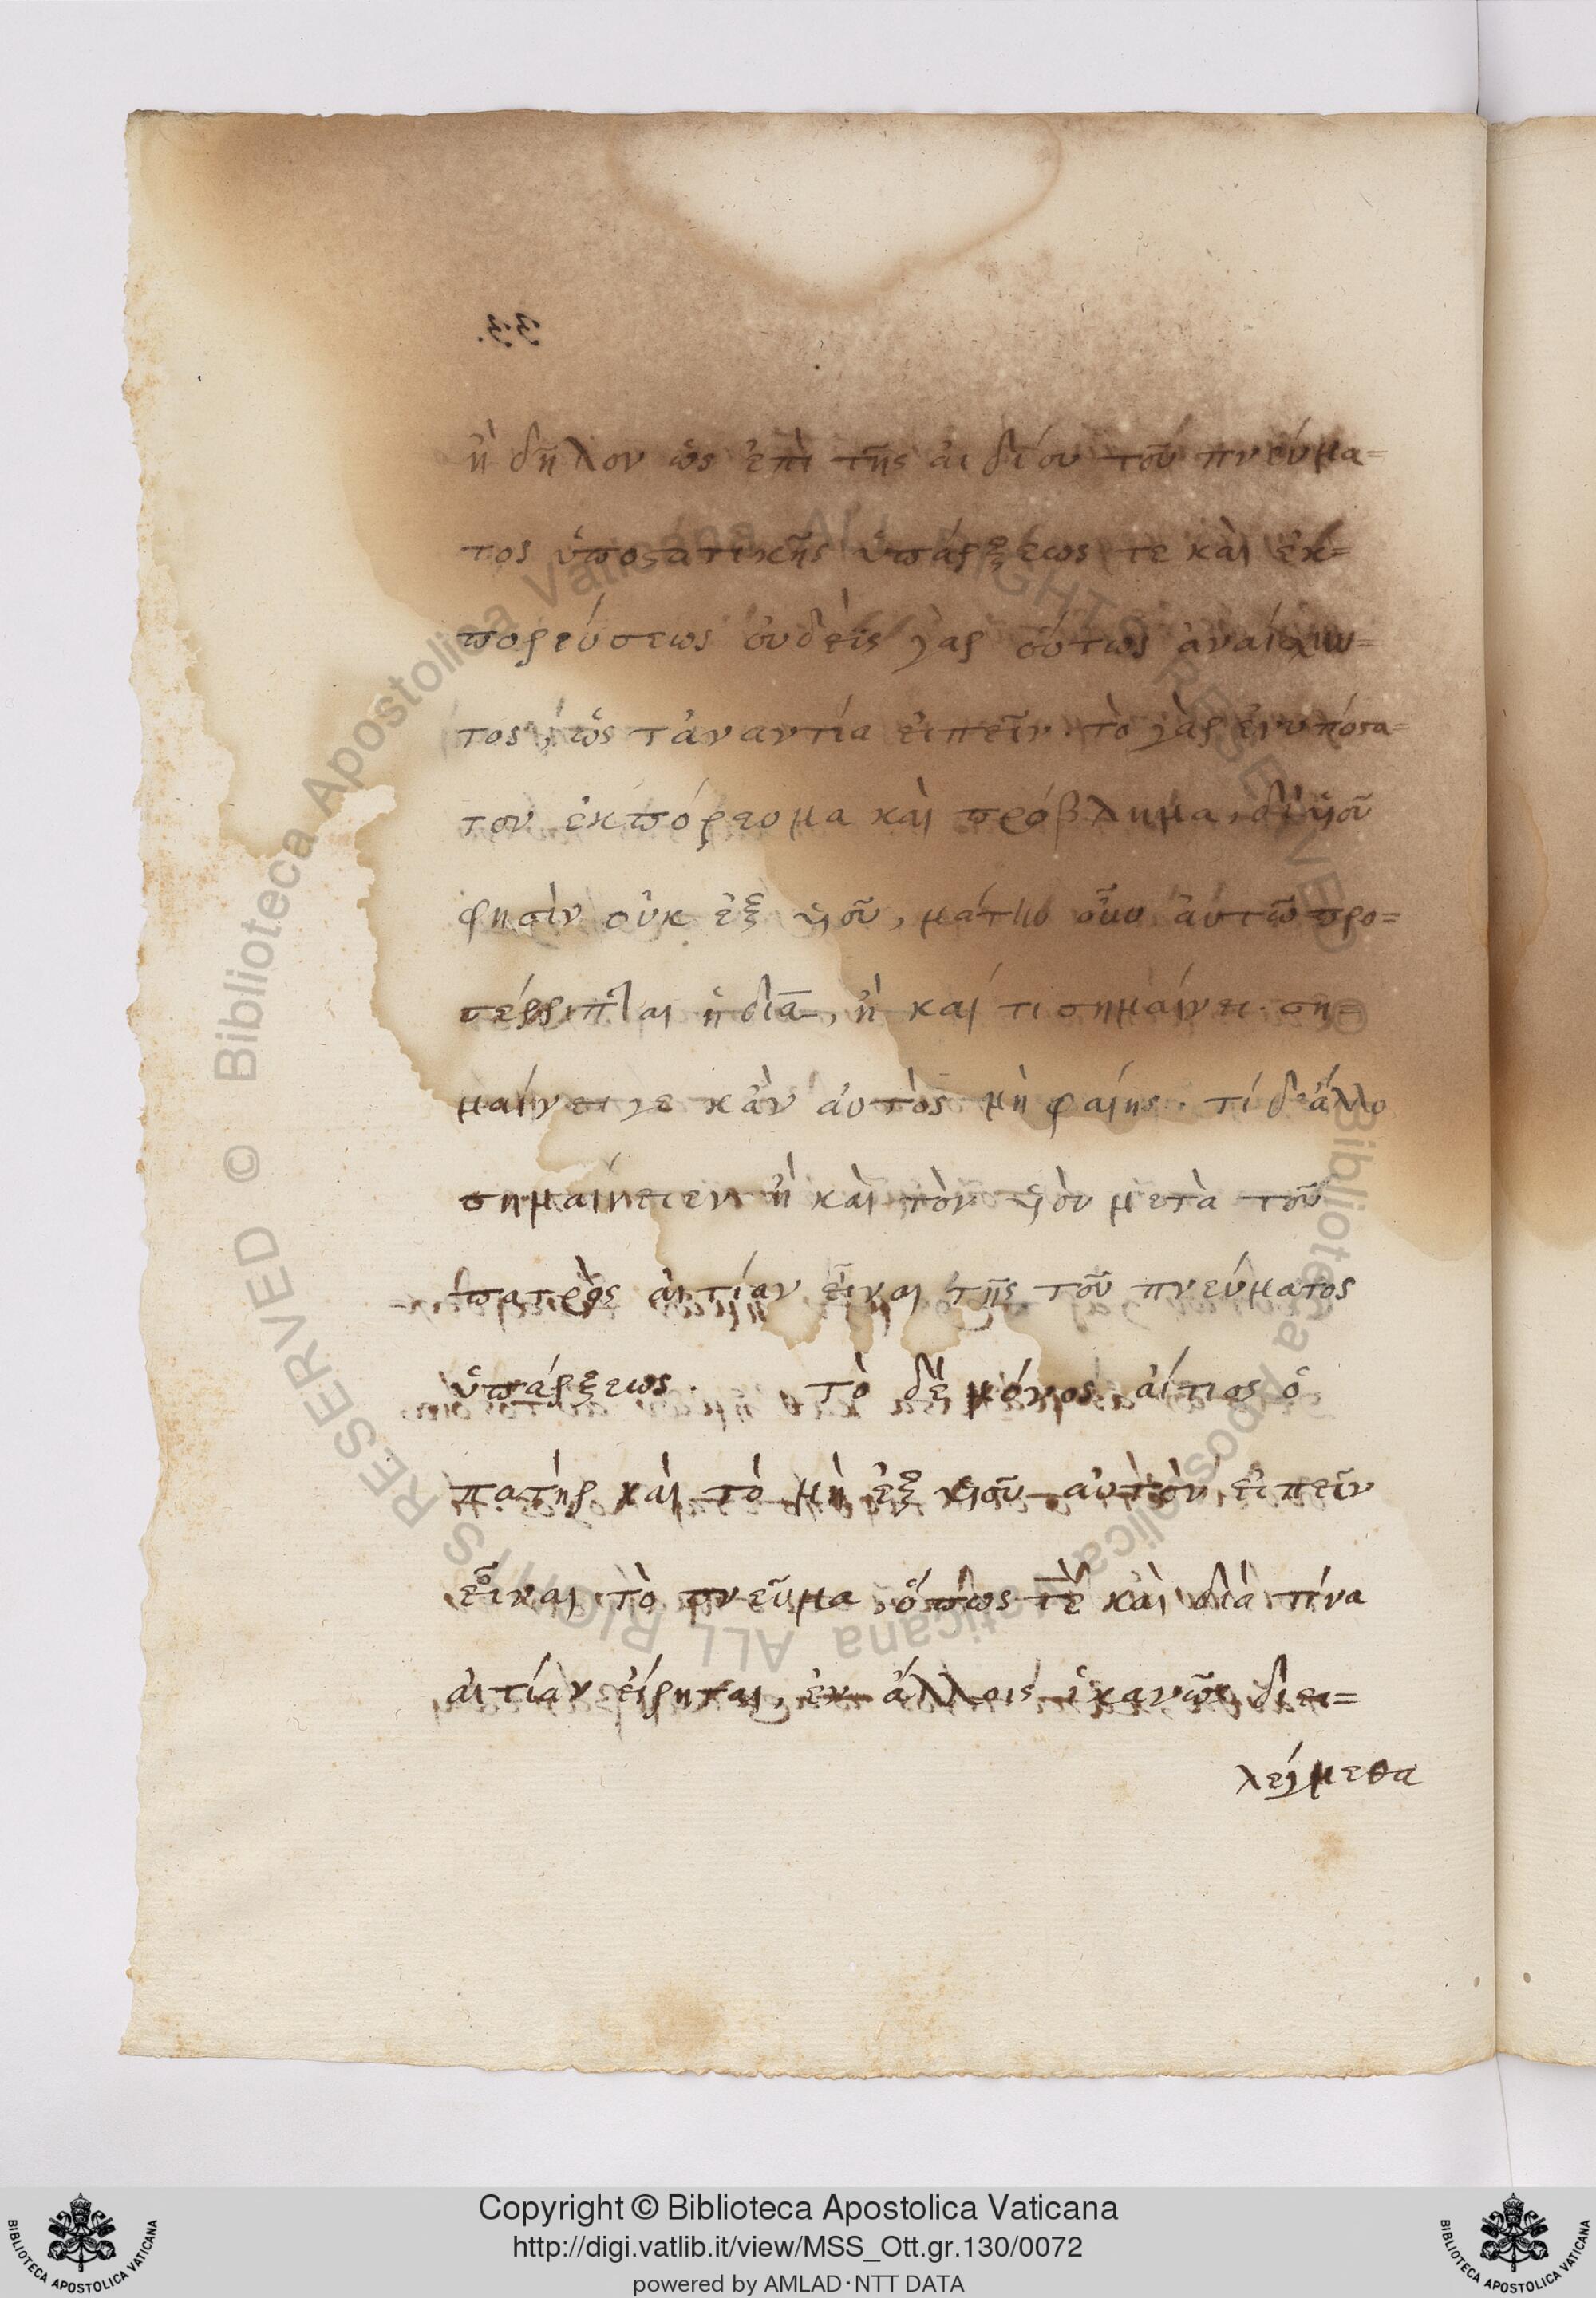 33.
ἢ δῆλον ὡς ἐπὶ τῆς ἀιδίου τοῦ πνεύμα=
τος ὑποστατικῆς ὑπάρξεως τε καὶ ἐκ=
πορεύσεως οὐδεὶς γὰρ οὕτως ἀναίσχυν=
τος, ὡς τἀναντία εἰπεῖν τὸ γὰρ ἐνυπόστα=
τον ἐκπόρευμα καὶ πρόβλημα, δι' υἱοῦ
φησὶν οὐκ ἐξ υἱοῦ, μάτην οὖν αὐτῶ προ=
σέρριπται ἡ διὰ, ἢ καί τι σημαίνει· ση=
μαίνει γε κἂν αὐτὸς μὴ φαίης. τί δ' ἄλλο
σημαίνειεν ἢ καὶ τὸν υἱὸν μετὰ τοῦ
πατρὸς αἰτίαν εἶναι τῆς τοῦ πνεύματος
ὑπάρξεως. τὸ δὲ μόνος αἴτιος ὁ
πατὴρ καὶ τὸ μὴ ἐξ υἱοῦ αὐτὸν εἰπεῖν
εἶναι τὸ πνεῦμα, ὅπως τὲ καὶ διὰ τίνα
αἰτίαν εἴρηται, ἐν ἄλλοις ἱκανῶς διει=
λέγμεθα
Copyright © Biblioteca Apostolica Vaticana
http://digi.vatlib.it/view/MSS_Ott.gr.130/0072
powered by AMLAD·NTT DATA
BIBLIOTECA APOSTOLICA VATICANA
BIBLIOTECA APOSTOLICA VATICANA
© Biblioteca Apostolica Vaticana ALL RIGHTS RESERVED
© Biblioteca Apostolica Vaticana ALL RIGHTS RESERVED